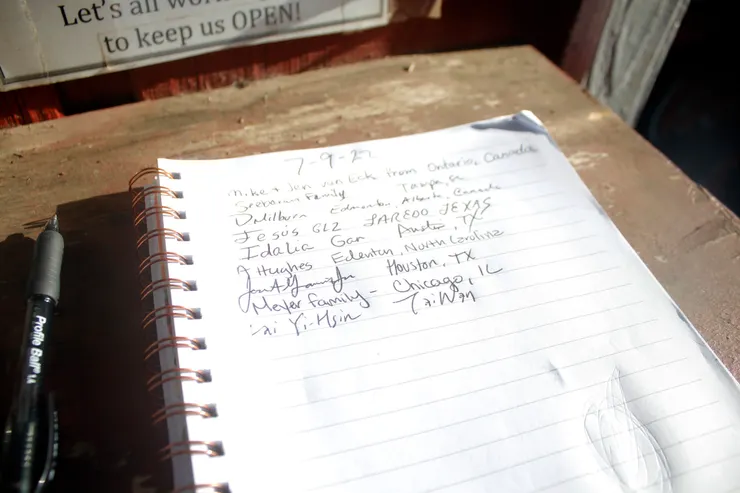 Let's all wor
to keep us OPEN!
7-9-2
Mike + Jen van Eck from Ontario, Canada
Family Tampa,
D Milburn Edmonton, Alberta, Canada
Jesús GLZ LAREDO TEXAS
Idalia Gar Austin, TX
A Hughes Edenton, North Carolina
Houston, TX
Meyer Family - Chicago, IL
Yi-Hsin TaiWan
Profile Ball 1.4